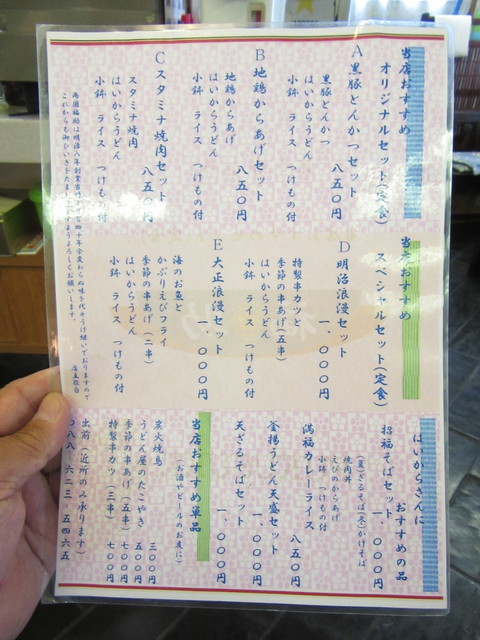 当店おすすめ
オリジナルセット(定食)
A 黒豚とんかつセット
八五〇円
黒豚とんかつ
はいからうどん
小鉢 ライス つけもの付
B 地鶏からあげセット
八五〇円
地鶏からあげ
はいからうどん
小鉢 ライス つけもの付
C スタミナ焼肉セット
八五〇円
スタミナ焼肉
はいからうどん
小鉢 ライス つけもの付
当店おすすめ
スペシャルセット(定食)
D 明治浪漫セット
一、〇〇〇円
特製串カツと
季節の串あげ(五串)
はいからうどん
小鉢 ライス つけもの付
E 大正浪漫セット
一、〇〇〇円
海のお魚と
かぶりえびフライ
季節の串あげ(二串)
はいからうどん
小鉢 ライス つけもの付
店主敬白
はいからさんに
おすすめの品
招福そばセット
一、〇〇〇円
(夏)ざるそば(冬)かけそば
焼肉丼
えびのからあげ
小鉢 つけもの付
満福カレーライス
八五〇円
釜揚うどん天盛セット
一、〇〇〇円
天ざるそばセット
一、〇〇〇円
当店おすすめ単品
(お酒やビールのお麦に)
炭火焼鳥 三〇〇円
うどん屋のたこやき 五〇〇円
季節の串あげ(五串) 七〇〇円
特製串カツ(三串) 七〇〇円
出前(近所のみ承ります)
〇八八-六二三-五四六五